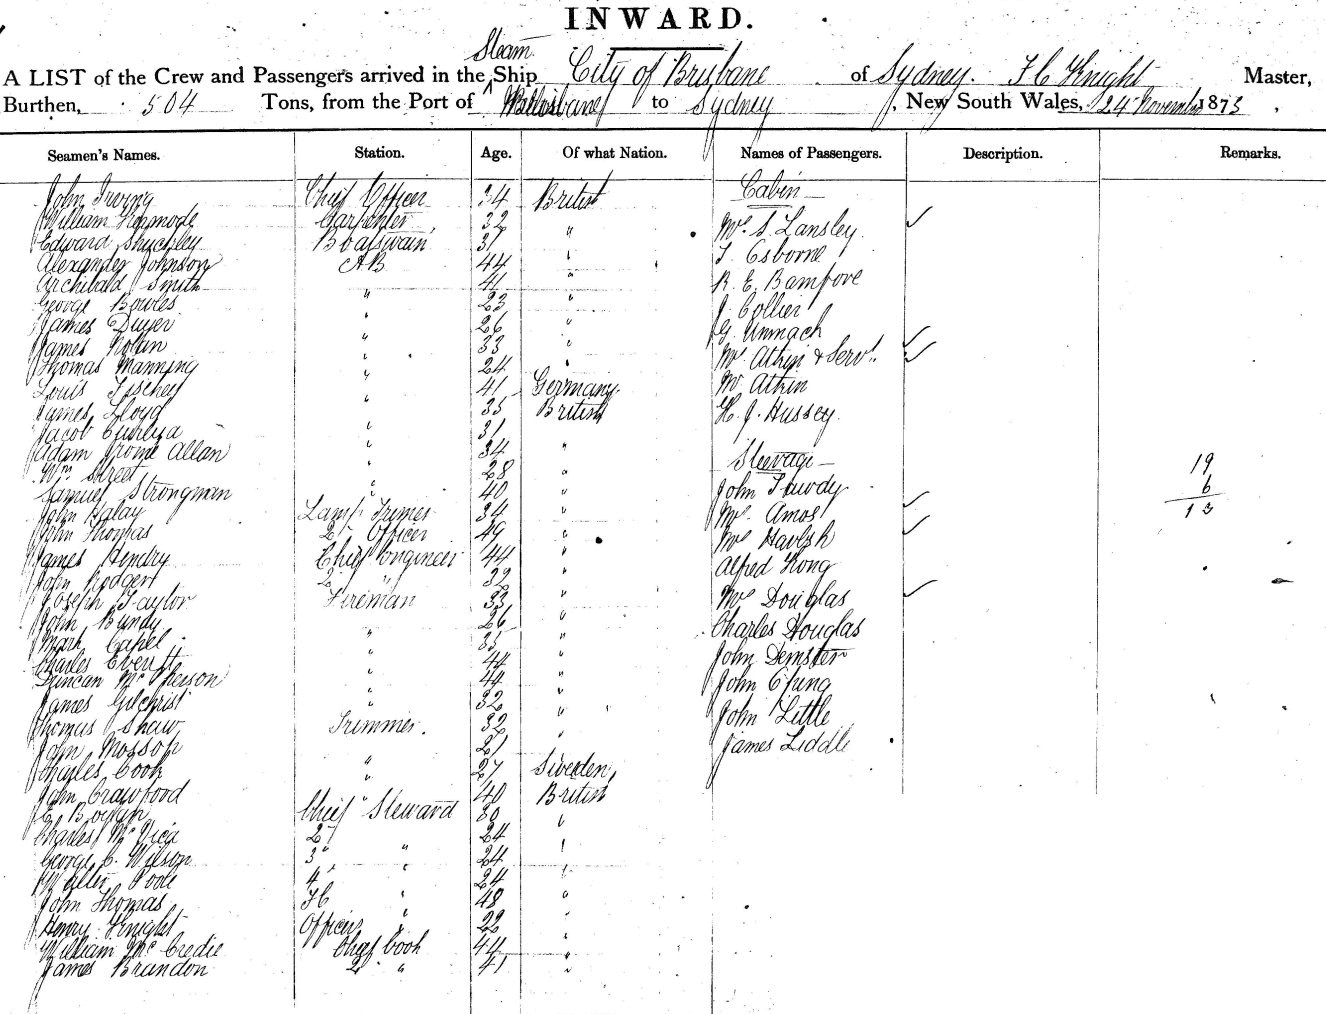 INWARD.
A LIST of the Crew and Passengers arrived in the Steam Ship City of Brisbane of Sydney. Knight Master,
Burthen, 504 Tons, from the Port of to Sydney, New South Wales, 24 November 1873
Seamen's Names. Station. Age. Of what Nation. Names of Passengers. Description. Remarks.
John Irving Chief Officer 34 British Cabin
William Carpenter 32 " Mrs S. Lansley
Edward Boatswain 31 " Osborne
Alexander Johnson AB 44 " R. E.
Archibald Smith " 41 " J. Collier
George Bowles " 23 " G. Unmach
James Dwyer " 26 " Mrs Atkin & Servt.
James Nolan " 33 " Mr Atkin
Thomas Manning " 24 " H. J. Hussey
Louis " 41 Germany
James Lloyd " 35 British Steerage
Jacob " 31 John
Adam Allan " 34 " Mrs Amos
Wm Street " 28 " Mrs
Samuel Strongman " 40 " Alfred Kong
John Lamp Trimer 34 " Mrs Douglas
John Thomas 2 Officer 49 " Charles Douglas
James Hendry Chief Engineer 44 " John Demster
John Rodger 2 " 32 " John
Joseph Taylor Fireman 33 " John Little
John Bundy 26 " James Liddle
Mark Capel " 35 "
Charles Everett " 44 "
Duncan McPherson " 44 "
James Gilchrist " 32 "
Thomas Shaw Trimmer. 32 "
John Mossop 21
Charles Cook " 27 Sweden
John Crawford " 40 British
Chief Steward 30 "
Charles 2 " 24 "
George C. Wilson 3 " 24 "
Walter Poole 4 " 24 "
John Thomas " 48 "
Henry Knight Officers " 22 "
William McCredie Chief Cook 44 "
James Brandon 2 " 41 "
19
6
13